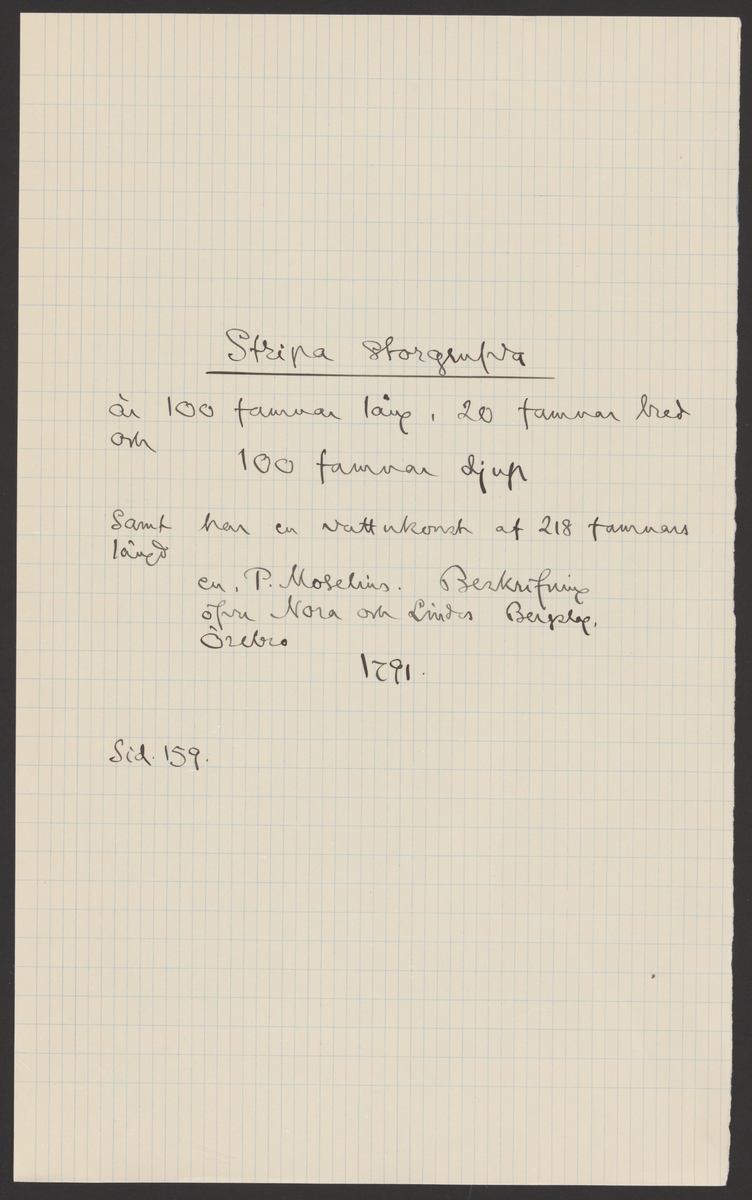 Stripa storgrufva
är 100 famnar lång, 20 famnar bred
och
100 famnar djup
Samt har en vattukonst af 218 famnars
längd
en. P. Moselius. Beskrifning
öfver Nora och Lindes Bergslag.
Örebro
1791.
Sid. 159.